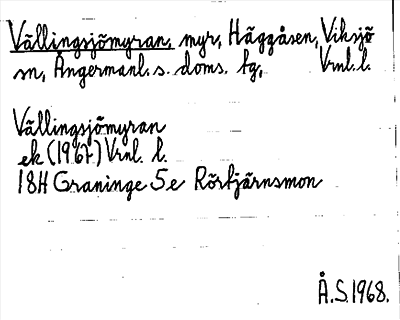 Vällingsjömyran, myr, Häggåsen, Viksjö
sn, Ångermanl. s. doms. tg, Vrnl. l.
Vällingsjömyran
ek (1967) Vrnl. l.
18H Graninge 5e Rörtjärnsmon
Å.S. 1968.